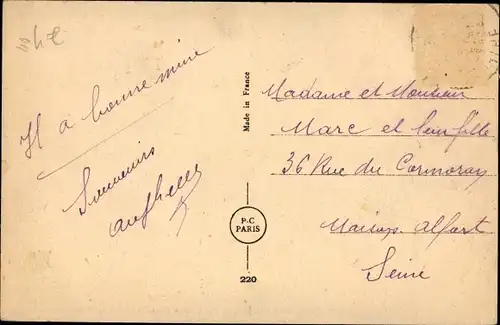 Il a bonne mine
Souvenirs
Made in France
P-C
PARIS
220
Madame et Monsieur
Marc et leur fille
36 Rue du Cormoray
Maisons Alfort
Seine